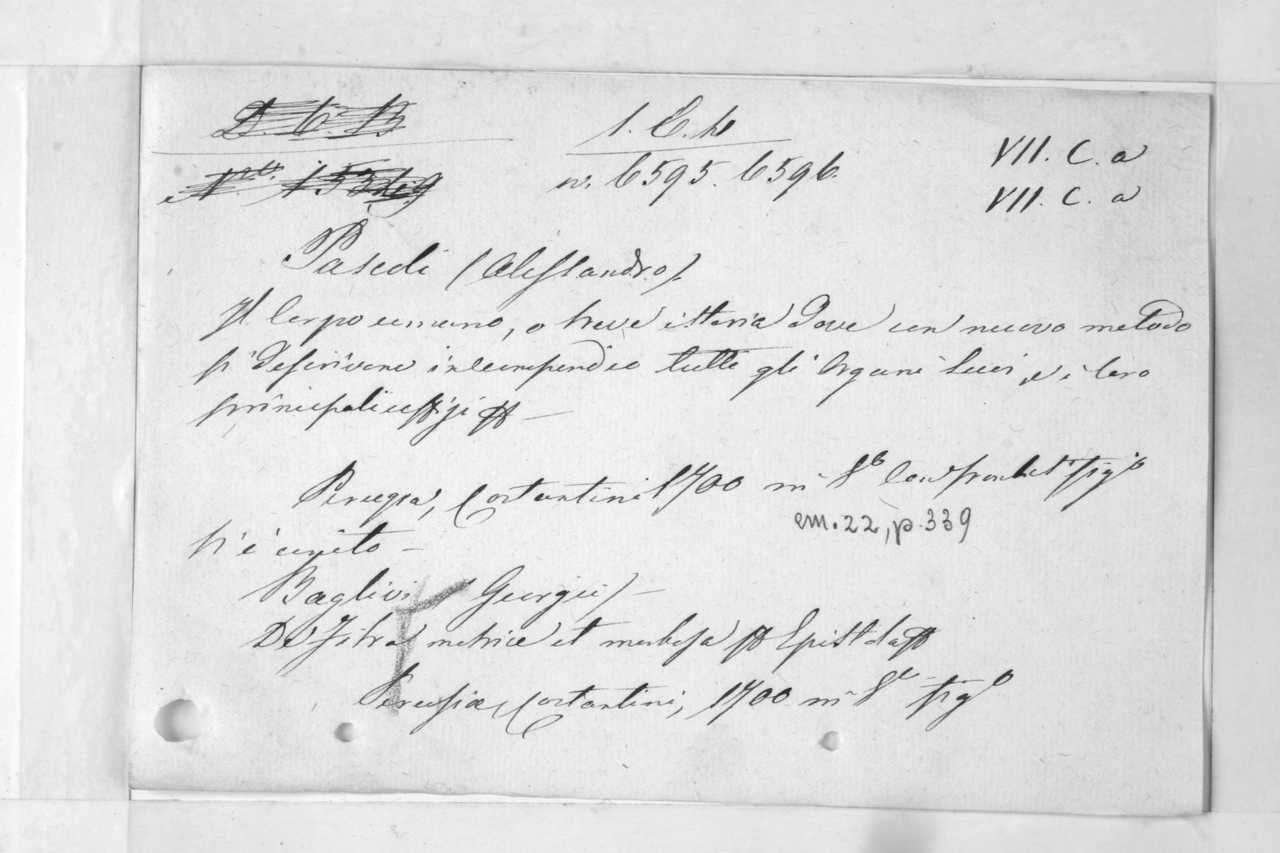 1. E. b
n. 6595. 6596.
VII. C. a
VII. C. a
Pascoli (Alessandro)
Il Corpo umano, o breve istoria dove con nuovo metodo
si descrivono in compendio tutti gli Organi suoi, e i loro
principali uffizj
Perugia, Costantini 1700 in 8º Con front. figº
em. 22, p. 339
Vi è unito
Baglivi Georgii)
De Fibra motrice et morbosa Epistola
Perusiæ, Costantini, 1700 in 8º figº